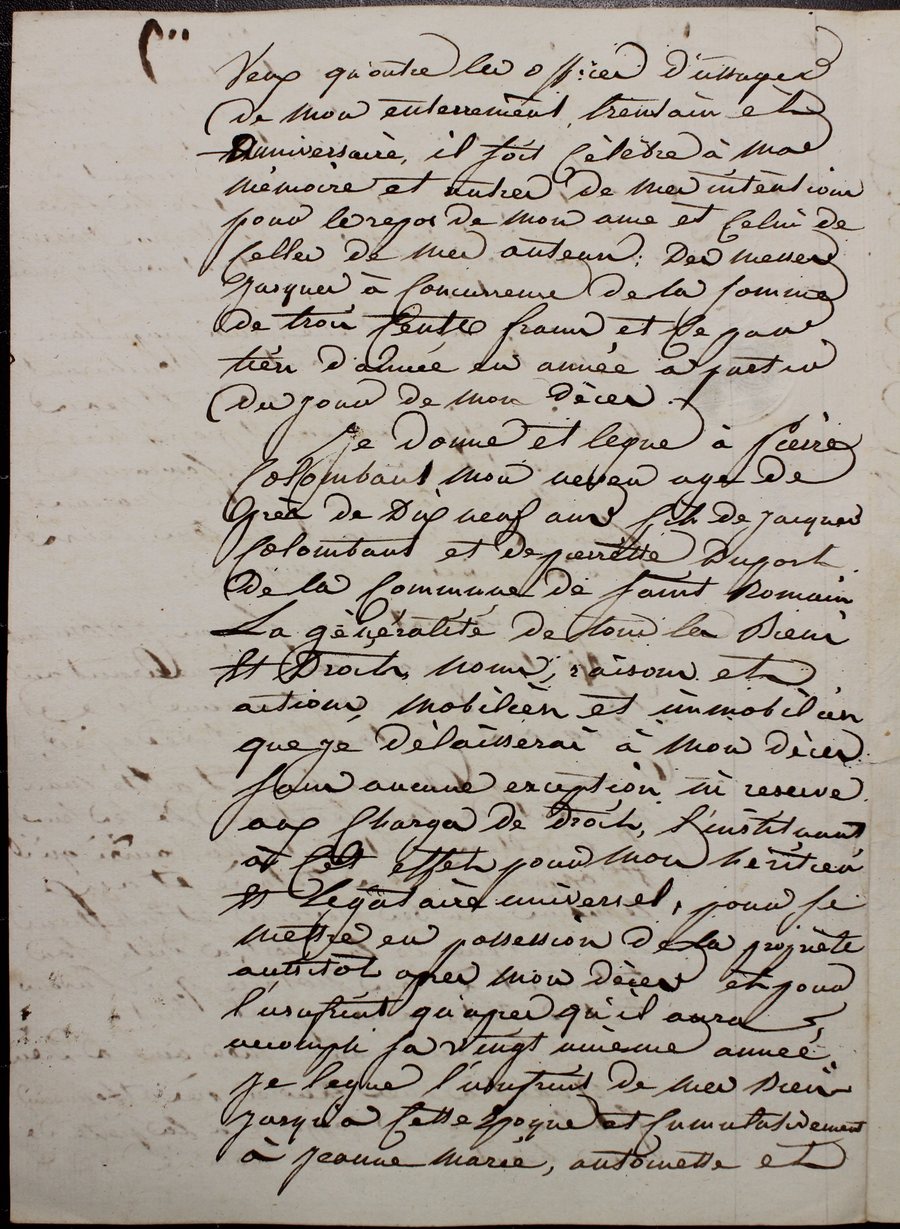 Veux qu'outre les offices d'ussages
de mon enterrement, trentain et
anniversaire, il soit célébré à ma
mémoire et entred de mes intentions
pour le repos de mon ame et Celui de
Celles de mes auteurs; Des messes
jusques à Concurrence de la somme
de trois Cents francs et Ce par
tiers d'année en année à partir
du jour de mon décès.
Je donne et legue à Pierre
Colombant mon neveu agé de
près de Dix neuf ans fils de Jacques
Colombant et de pierrette Duport
De la Commune de saint Romain
La généralité de tous les Biens
et Droits, noms, raisons et
actions, mobiliers et immobiliers
que je délaisserai à mon décès
sans aucune exception ni reserve
aux Charges de Droit, l'instituant
à Cet effet pour mon héritier
et Légataire universel, pour se
mettre en possession de la propriété
aussitôt apres mon décès et pour
l'usufruit qu'apres qu'il aura
accompli sa vingt unieme année,
je legue l'usufruit de mes Biens
jusqu'à Cette époque et Cumulativement
à Jeanne marie, antoinette et